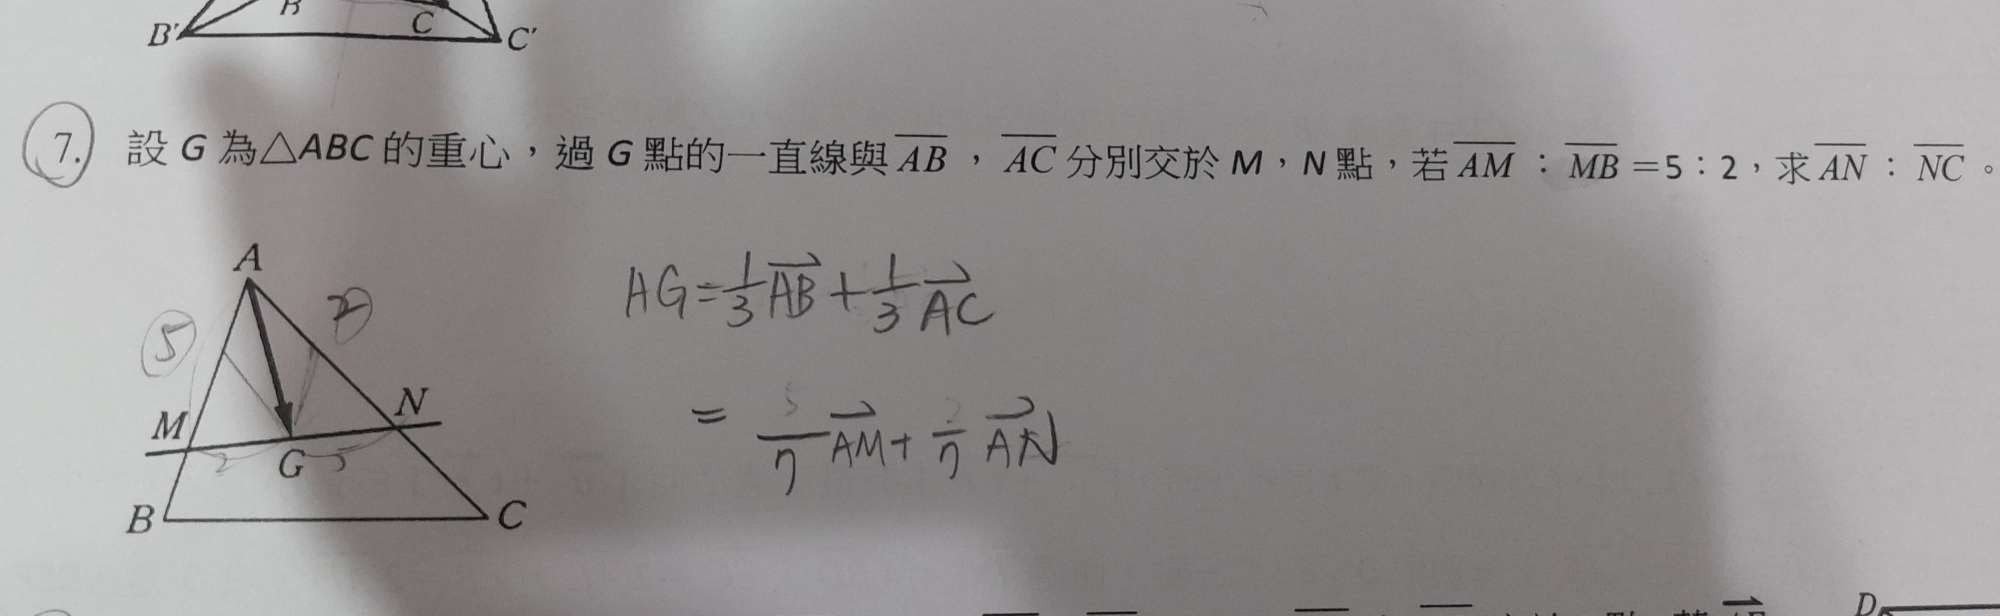 B' B C C'
7. 設 G 為△ABC 的重心，過 G 點的一直線與 AB，AC 分別交於 M，N 點，若 AM：MB＝5：2，求 AN：NC。
A
5 2
AG = 1/3 AB + 1/3 AC
M N
2 G 5
= 5/7 AM + 2/7 AN
B C
D